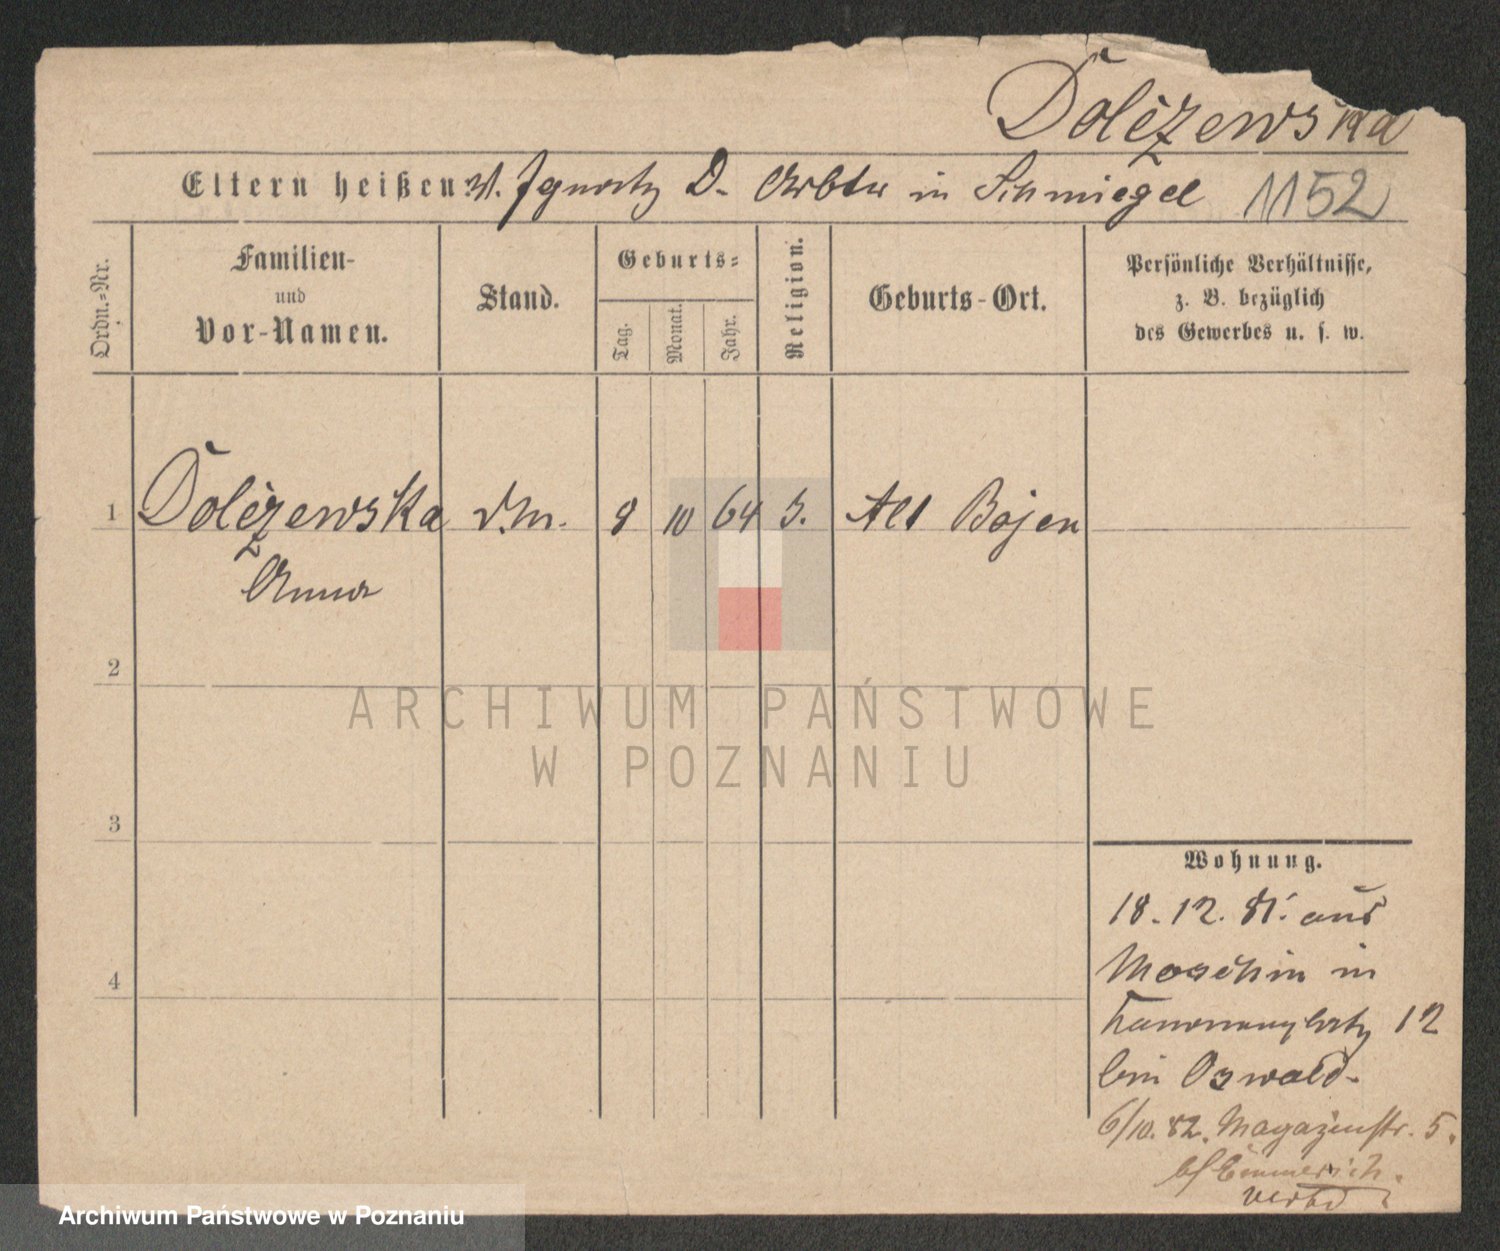 Doležewska
Eltern heißen: V. Ignatz D. Arbtr in Schmiegel 1152
Ordn.-Nr.
Familien-
und
Vor-Namen.
Stand.
Geburts-
Tag.
Monat.
Jahr.
Religion.
Geburts-Ort.
Persönliche Verhältnisse,
z. B. bezüglich
des Gewerbes u. s. w.
1 Doležewska d.M. 8 10 64 Alt Bojen
Anna
2
3
4
Wohnung.
18.12.81. aus
Moschin in
Kanonenplatz 12
bei Oswald.
6/10.82. Magazinstr. 5.
b/ Emmerich.
ARCHIWUM PAŃSTWOWE
W POZNANIU
Archiwum Państwowe w Poznaniu